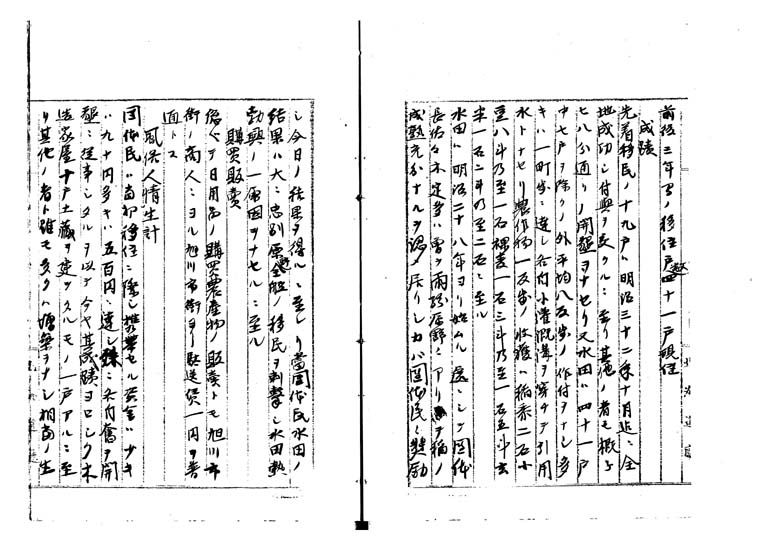 前後三年ヲ移住戸四十一戸現住
成蹟
先着移民ノ十九戸ハ明治三十二年十月迄ニ全
地成功シ付與ヲ受クルニ至リ其他ノ者モ概子
七八分通リノ開墾ヲナセリ又水田ハ四十一戸
中七戸ヲ除クノ外平均八反歩ノ作付ヲナシ多
キハ一町歩ニ達シ各自小灌漑溝ヲ穿チテ引用
水トナセリ農作物一反歩ノ收獲ハ稲黍二石小
豆八斗乃至一石裸麦一石三斗乃至一石五斗玄
米一石二斗乃至二石ニ至ル
水田ハ明治二十八年ヨリ始ム
長
成熟充分ナルヲ認メ居リシカバ團体民ヲ奨励
シ今日ノ結果ヲ得ルニ至レリ當團体民水田ノ
結果ハ大ニ忠別原全般ノ移民ヲ刺撃シ水田熱
勃興ノ一原因ヲナセルニ至ル
購買販賣
日用品ノ購買農産物ノ販賣トモ旭川市
街ノ商人ニヨル旭川市街ヨリ駄送賃一円ヲ普
通トス
風俗人情生計
團体民ハ當初移住ニ際シ携帯セル資金ハ少キ
ハ九十円多キハ五百円ニ達シ殊ニ各自奮テ開
墾ニ従事シタルヲ以テ今ヤ其成蹟ヨロシク木
造家屋十戸土藏ヲ建ツクルモノ一戸アルニ至
リ其他ノ者ト雖モ多クハ増築ヲナシ相當ノ生